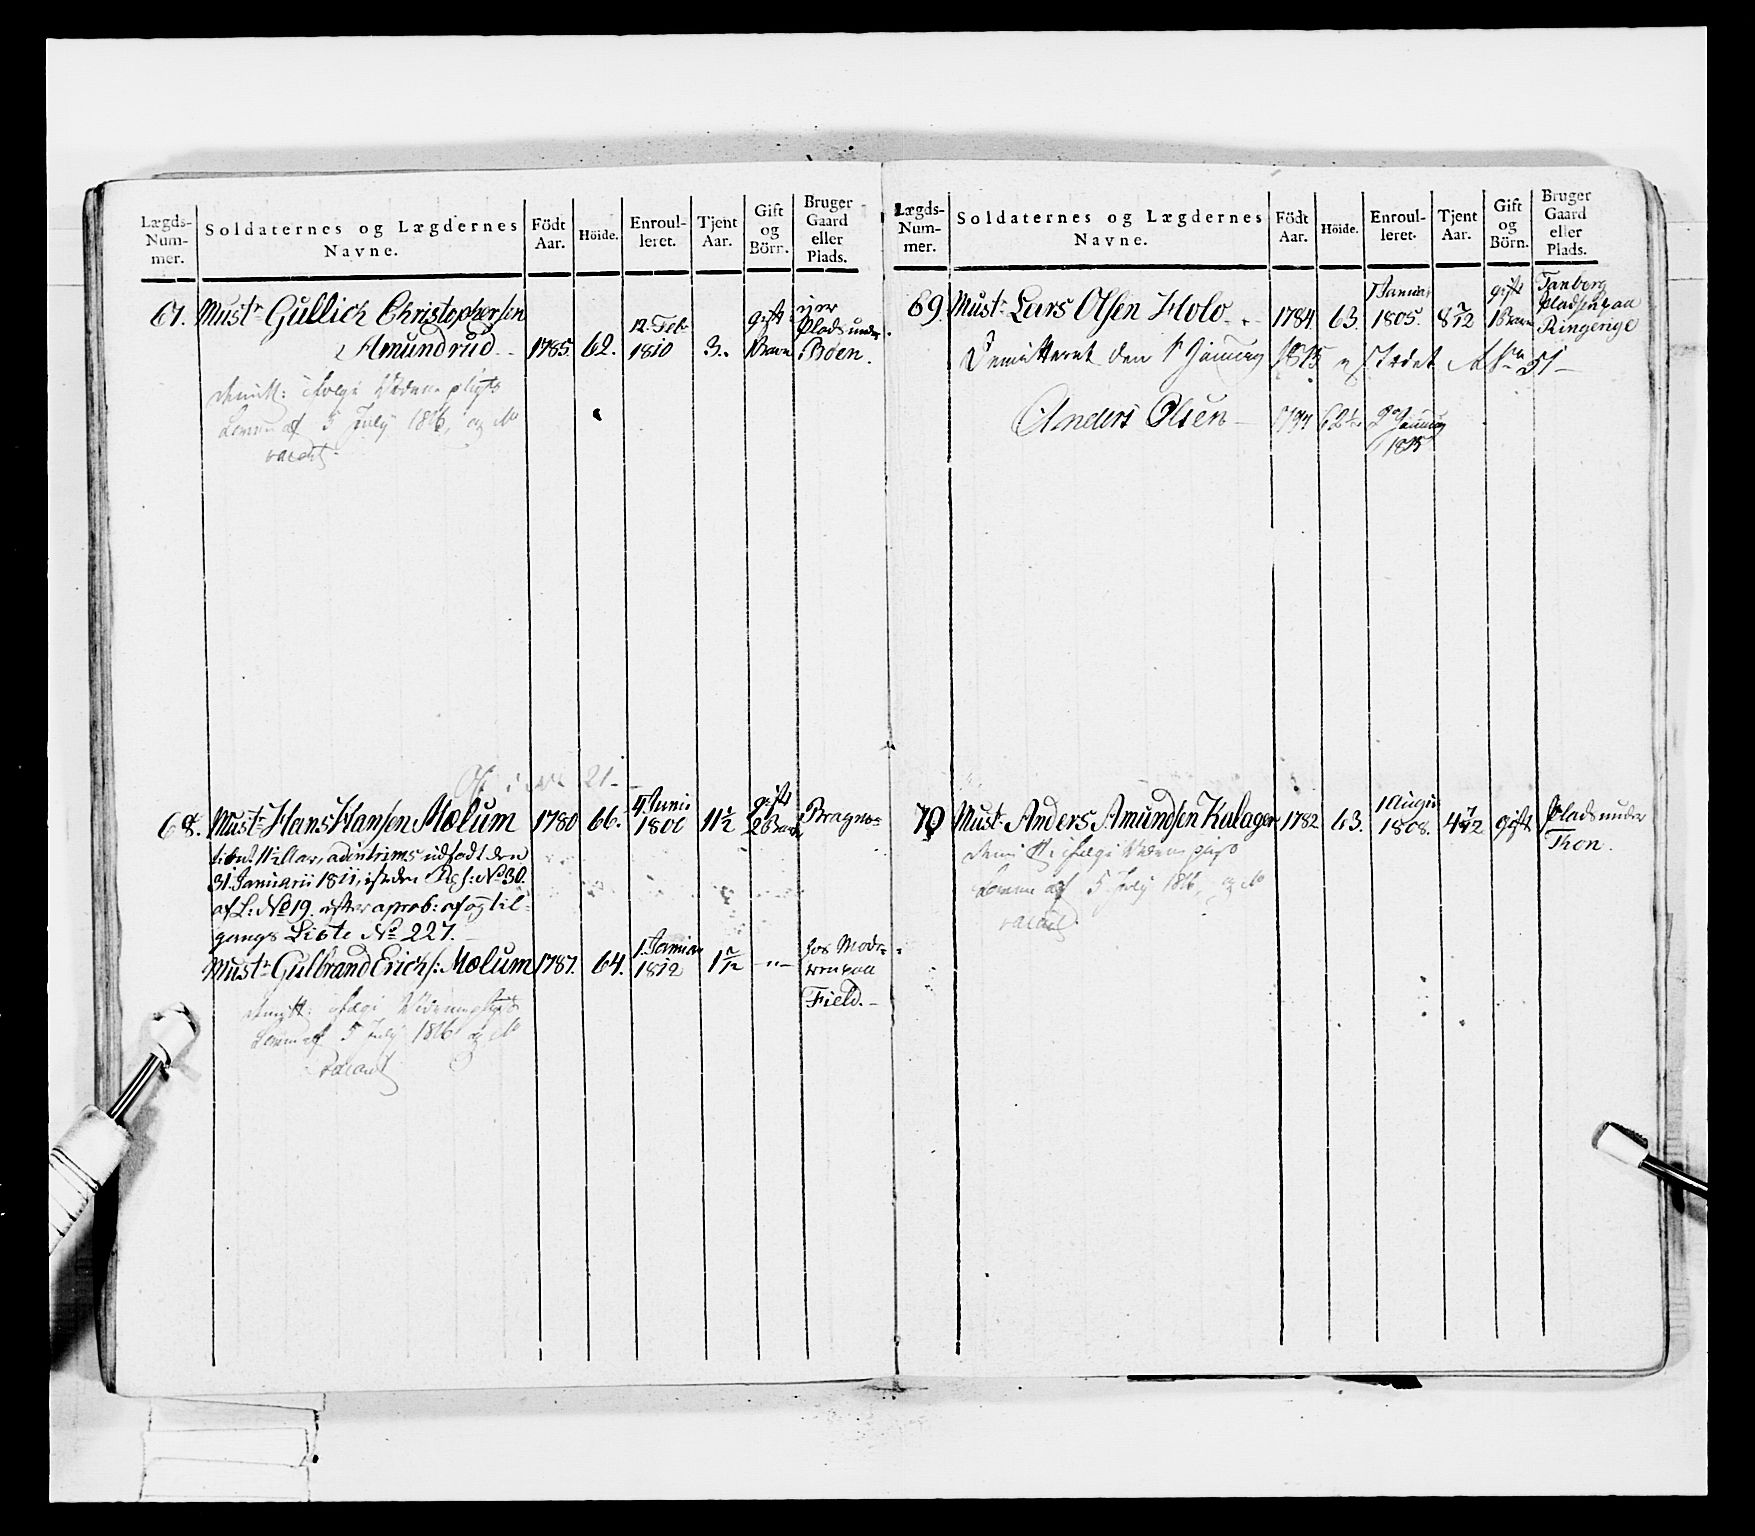 Lægds-Num-mer. Soldaternes og Lægdernes Navne. Födt Aar. Höide. Enroul-leret. Tjent Aar. Gift og Börn. Bruger Gaard eller Plads.
67. Mustr Gullich Christophersen
Amundrud 1785. 62. 12. Feb. 1810 3. gift 1 Barn ejer Plads under Böen.
demitt: ifølge
af 5 July 1816, og No
vacant
68. Mustr Hans Hansen Mælum 1780 66. 4 Junii 1800 11 1/2 gift 2 Børn Bragnes
adintrims udsadt den
31 Januarii 1811, isteden Res: No 30.
af L: No 19. efter aprob: af og til-
gangs Liste No 227.
Mustr Gulbrand Erichs: Mælum 1787. 64. 1. Januar 1812 1 7/12 -"- hos Mode-ren paa Field.
demitt: ifølge
af 5 July 1816 og No
vacant
Lægds-Num-mer. Soldaternes og Lægdernes Navne. Födt Aar. Höide. Enroul-leret. Tjent Aar. Gift og Börn. Bruger Gaard eller Plads.
69. Mustr Lars Olsen Holo 1784 63. 1 Januar 1805. 8 7/12 gift 1 Barn Tanberg Pladsen paa Ringerige
Demitteret den 1 January 1815
Anders Olsen 62 January 1815
70 Mustr Anders Amundsen Kulager 1782 63. 1 August 1808. 4 7/12 gift Plads under Thon.
demitt: ifølge
af 5 July 1816, og No
vacant